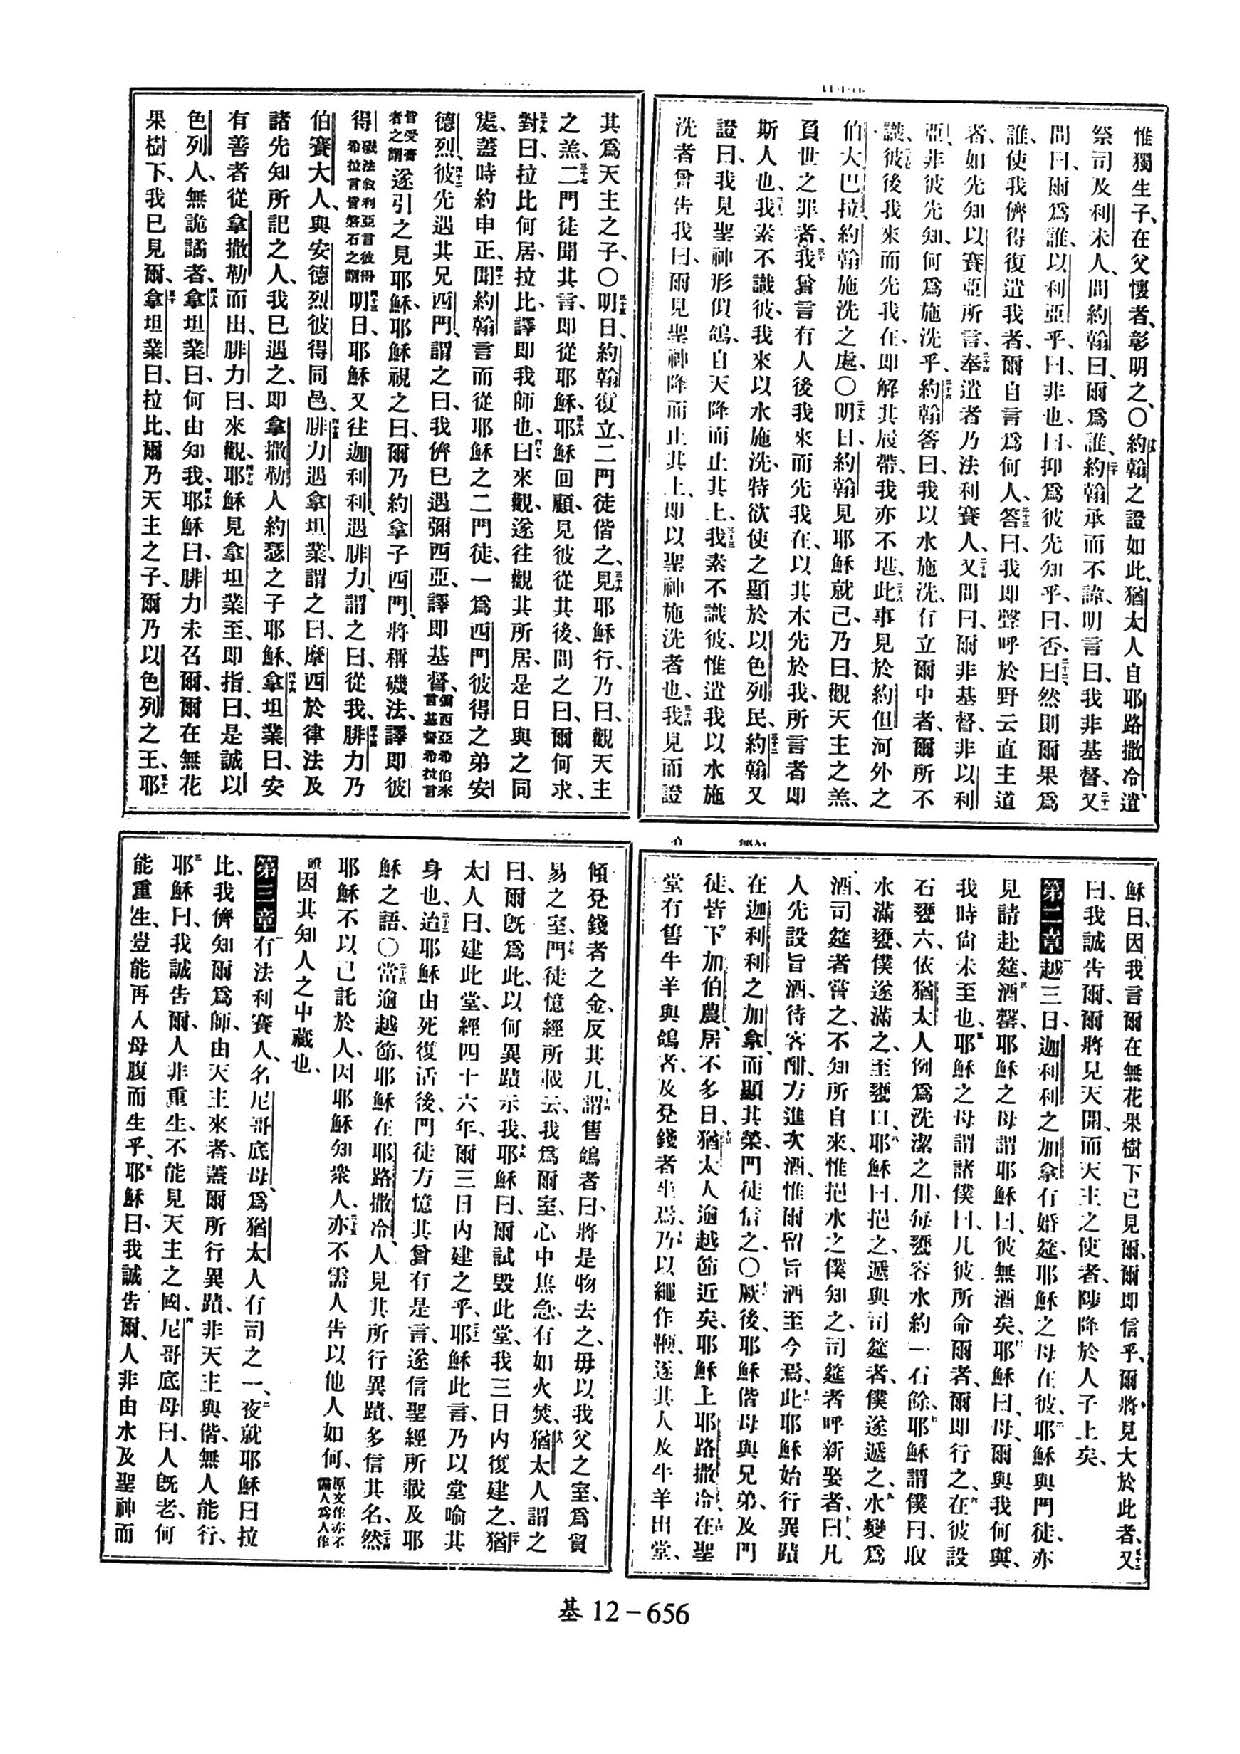 惟獨生子、在父懷者、彰明之、〇約翰之證如此、猶太人自耶路撒冷遣
祭司及利未人、問約翰曰、爾爲誰、約翰承而不諱、明言曰、我非基督、又
問曰、爾爲誰、以利亞乎、曰、非也、曰、抑爲彼先知乎、曰、否、曰、然則爾果爲
誰、使我儕得復遣我者、爾自言爲何人、答曰、我卽聲呼於野云、直主道
者、如先知以賽亞所言、奉遣者乃法利賽人、又問曰、爾非基督、非以利
亞、非彼先知、何爲施洗乎、約翰答曰、我以水施洗、有立爾中者、爾所不
識、彼後我來而先我在、卽解其屨帶、我亦不堪、此事見於約但河外之
伯大巴拉、約翰施洗之處、〇明日、約翰見耶穌就己、乃曰、觀天主之羔、
負世之罪者、我曾言有人後我來而先我在、以其本先於我、所言者卽
斯人也、我素不識彼、我來以水施洗、特欲使之顯於以色列民、約翰又
證曰、我見聖神形似鴿、自天降而止其上、我素不識彼、惟遣我以水施
洗者曾告我曰、爾見聖神降而止其上、卽以聖神施洗者也、我見而證
其爲天主之子、〇明日、約翰復立、二門徒偕之、見耶穌行、乃曰、觀天主
之羔、二門徒聞其言、卽從耶穌、耶穌回顧、見彼從其後、問之曰、爾何求、
對曰、拉比何居、拉比、譯卽我師也、曰、來觀、遂往觀其所居、是日與之同
處、蓋時約申正、聞約翰言而從耶穌之二門徒、一爲西門彼得之弟安
德烈、彼先遇其兄西門、謂之曰、我儕已遇彌西亞、譯卽基督、彌西亞希伯來言基督希拉言
皆受膏者之謂遂引之見耶穌、耶穌視之曰、爾乃約拿子西門、將稱磯法、譯卽彼
得、磯法叙利亞言彼得希拉言皆磐石之謂明日、耶穌又往迦利利、遇腓力、謂之曰、從我、腓力乃
伯賽大人、與安德烈彼得同邑、腓力遇拿坦業、謂之曰、摩西於律法及
諸先知所記之人、我已遇之、卽拿撒勒人約瑟之子耶穌、拿坦業曰、安
有善者從拿撒勒而出、腓力曰、來觀、耶穌見拿坦業至、卽指曰、是誠以
色列人、無詭譎者、拿坦業曰、何由知我、耶穌曰、腓力未召爾、爾在無花
果樹下、我已見爾、拿坦業曰、拉比、爾乃天主之子、爾乃以色列之王、耶
穌曰、因我言爾在無花果樹下已見爾、爾卽信乎、爾將見大於此者、又
曰、我誠告爾、爾將見天開而天主之使者、陟降於人子上矣、
第二章越三日、迦利利之加拿有婚筵、耶穌之母在彼、耶穌與門徒、亦
見請赴筵、酒罄、耶穌之母謂耶穌曰、彼無酒矣、耶穌曰、母、爾與我何與、
我時尙未至也、耶穌之母謂諸僕曰、凡彼所命爾者、爾卽行之、在彼設
石甕六、依猶太人例爲洗潔之用、每甕容水約一石餘、耶穌謂僕曰、取
水滿甕、僕遂滿之至甕口、耶穌曰、挹之、遞與司筵者、僕遂遞之、水變爲
酒、司筵者嘗之、不知所自來、惟挹水之僕知之、司筵者呼新娶者曰、凡
人先設旨酒、待客酣、方進次酒、惟爾留旨酒至今焉、此耶穌始行異蹟
在迦利利之加拿、而顯其榮、門徒信之、〇厥後、耶穌偕母與兄弟及門
徒、皆下加伯農、居不多日、猶太人逾越節近矣、耶穌上耶路撒冷、在聖
堂有售牛羊與鴿者、及兌錢者坐焉、乃以繩作鞭、逐其人及牛羊出堂、
傾兌錢者之金、反其几、謂售鴿者曰、將是物去之、毋以我父之室、爲貿
易之室、門徒憶經所載云、我爲爾室心中焦急、有如火焚、猶太人謂之
曰、爾旣爲此、以何異蹟示我、耶穌曰、爾試毀此堂、我三日內復建之、猶
太人曰、建此堂、經四十六年、爾三日內建之乎、耶穌此言、乃以堂喻其
身也、迨耶穌由死復活後、門徒方憶其曾有是言、遂信聖經所載及耶
穌之語、〇當逾越節、耶穌在耶路撒冷、人見其所行異蹟、多信其名、然
耶穌不以己託於人、因耶穌知衆人、亦不需人告以他人如何、原文作亦不需人爲人作
證因其知人之中藏也、
第三章有法利賽人、名尼哥底母、爲猶太人有司之一、夜就耶穌曰、拉
比、我儕知爾爲師、由天主來者、蓋爾所行異蹟、非天主與偕、無人能行、
耶穌曰、我誠告爾、人非重生、不能見天主之國、尼哥底母曰、人旣老、何
能重生、豈能再入母腹而生乎、耶穌曰、我誠告爾、人非由水及聖神而
基 12－656